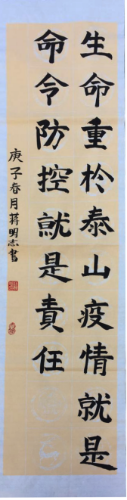 生命重於泰山疫情就是
命令防控就是責任
庚子春月蔣明志書